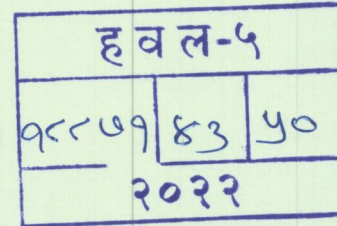 ह व ल-५
१८८७१ ४३ ५०
२०२२